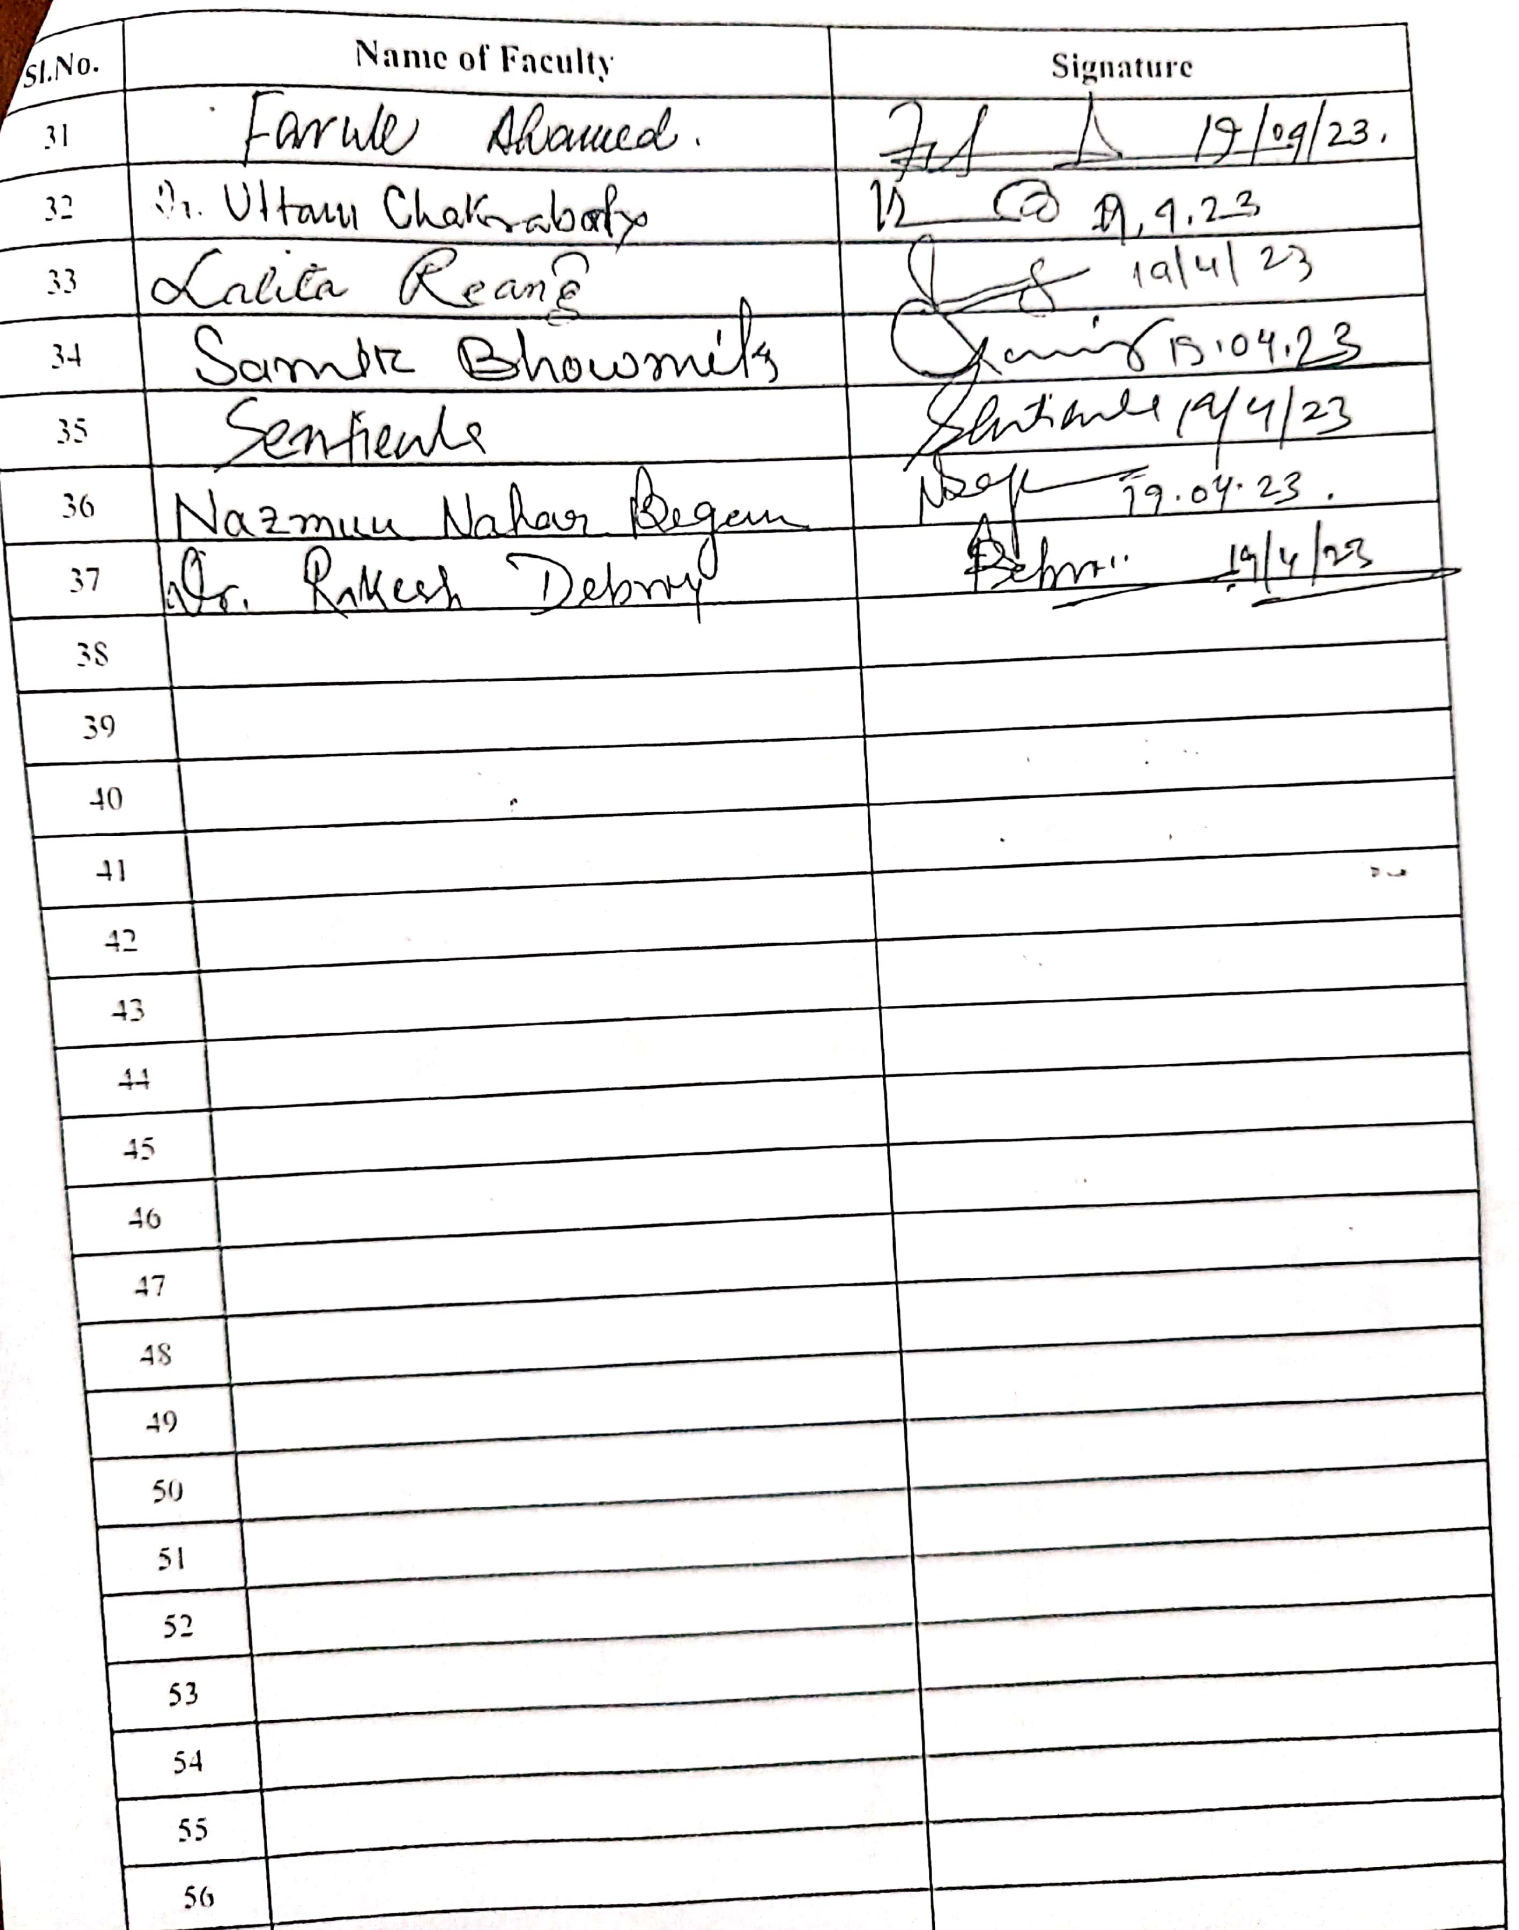 Sl.No. Name of Faculty Signature
31 Faruk Ahamed. 19/09/23.
32 Dr. Uttam Chakraborty 19.4.23
33 Lalita Reang 19/4/23
34 Samir Bhowmik 19.04.23
35 Sentienla Sentienla 19/4/23
36 Nazmun Nahar Begam 19.04.23.
37 Dr. Rakesh Debroy 19/4/23
38
39
40
41
42
43
44
45
46
47
48
49
50
51
52
53
54
55
56